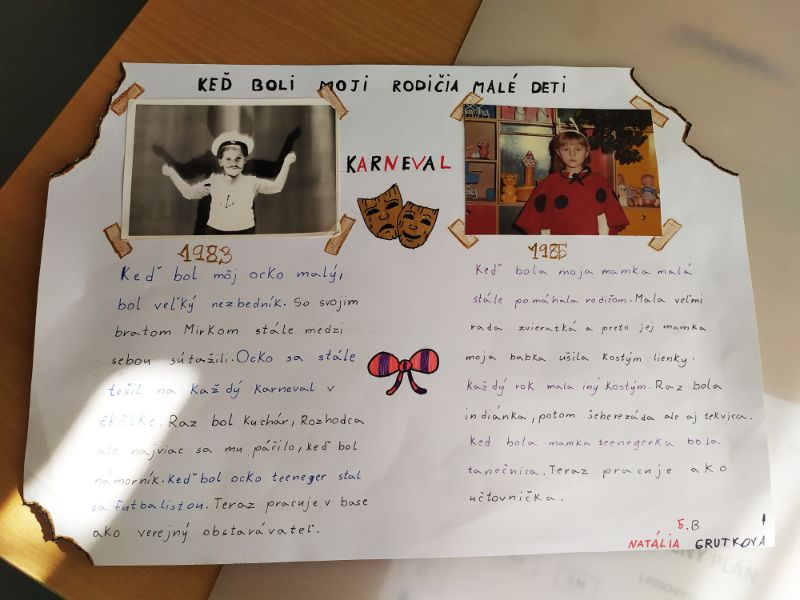 KEĎ BOLI MOJI RODIČIA MALÉ DETI
KARNEVAL
1983
Keď bol môj ocko malý,
bol veľký nezbedník. So svojim
bratom Mirkom stále medzi
sebou súťažili. Ocko sa stále
tešil na každý karneval v
škôlke. Raz bol kuchár, Rozhodca
ale najviac sa mu páčilo, keď bol
námorník. Keď bol ocko teeneger stal
sa futbalistom. Teraz pracuje v base
ako verejný obstarávateľ.
Keď bola moja mamka malá
stále pomáhala rodičom. Mala veľmi
rada zvieratká a preto jej mamka
moja babka ušila kostým lienky.
Každý rok mala iný kostým. Raz bola
indiánka, potom šeherezáda ale aj tekvica.
Keď bola mamka teenegerka bola
tanečnica. Teraz pracuje ako
účtovníčka.
5.B
NATÁLIA GRUTKOVÁ
PLAN